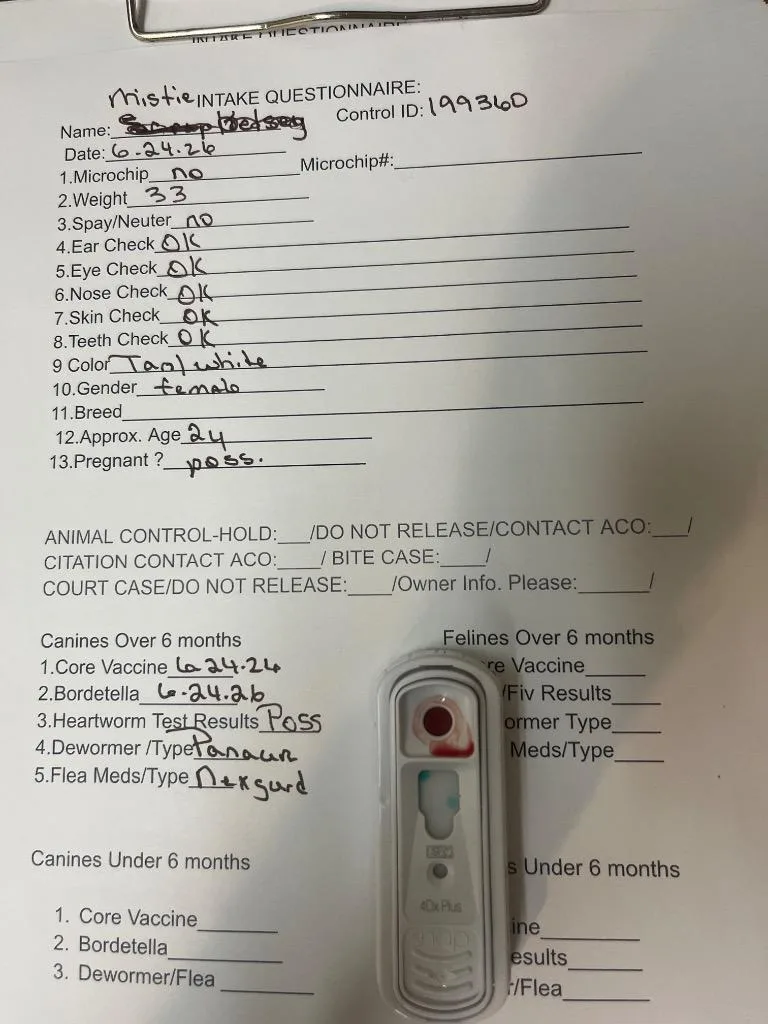 INTAKE QUESTIONNAIRE
Mistie INTAKE QUESTIONNAIRE:
Name: Control ID: 199360
Date: 6-24.26
1.Microchip no Microchip#:
2.Weight 33
3.Spay/Neuter no
4.Ear Check OK
5.Eye Check OK
6.Nose Check OK
7.Skin Check OK
8.Teeth Check OK
9 Color Tan/white
10.Gender female
11.Breed
12.Approx. Age 24
13.Pregnant ? poss.
ANIMAL CONTROL-HOLD:___/DO NOT RELEASE/CONTACT ACO:___/
CITATION CONTACT ACO:____/ BITE CASE:____/
COURT CASE/DO NOT RELEASE:____/Owner Info. Please:______/
Canines Over 6 months
1.Core Vaccine 6.24.26
2.Bordetella 6-24.26
3.Heartworm Test Results Poss
4.Dewormer /Type Panacur
5.Flea Meds/Type Nexgard
Felines Over 6 months
re Vaccine
/Fiv Results
ormer Type
Meds/Type
4Dx Plus
snap
Canines Under 6 months
1. Core Vaccine
2. Bordetella
3. Dewormer/Flea
s Under 6 months
ine
esults
r/Flea